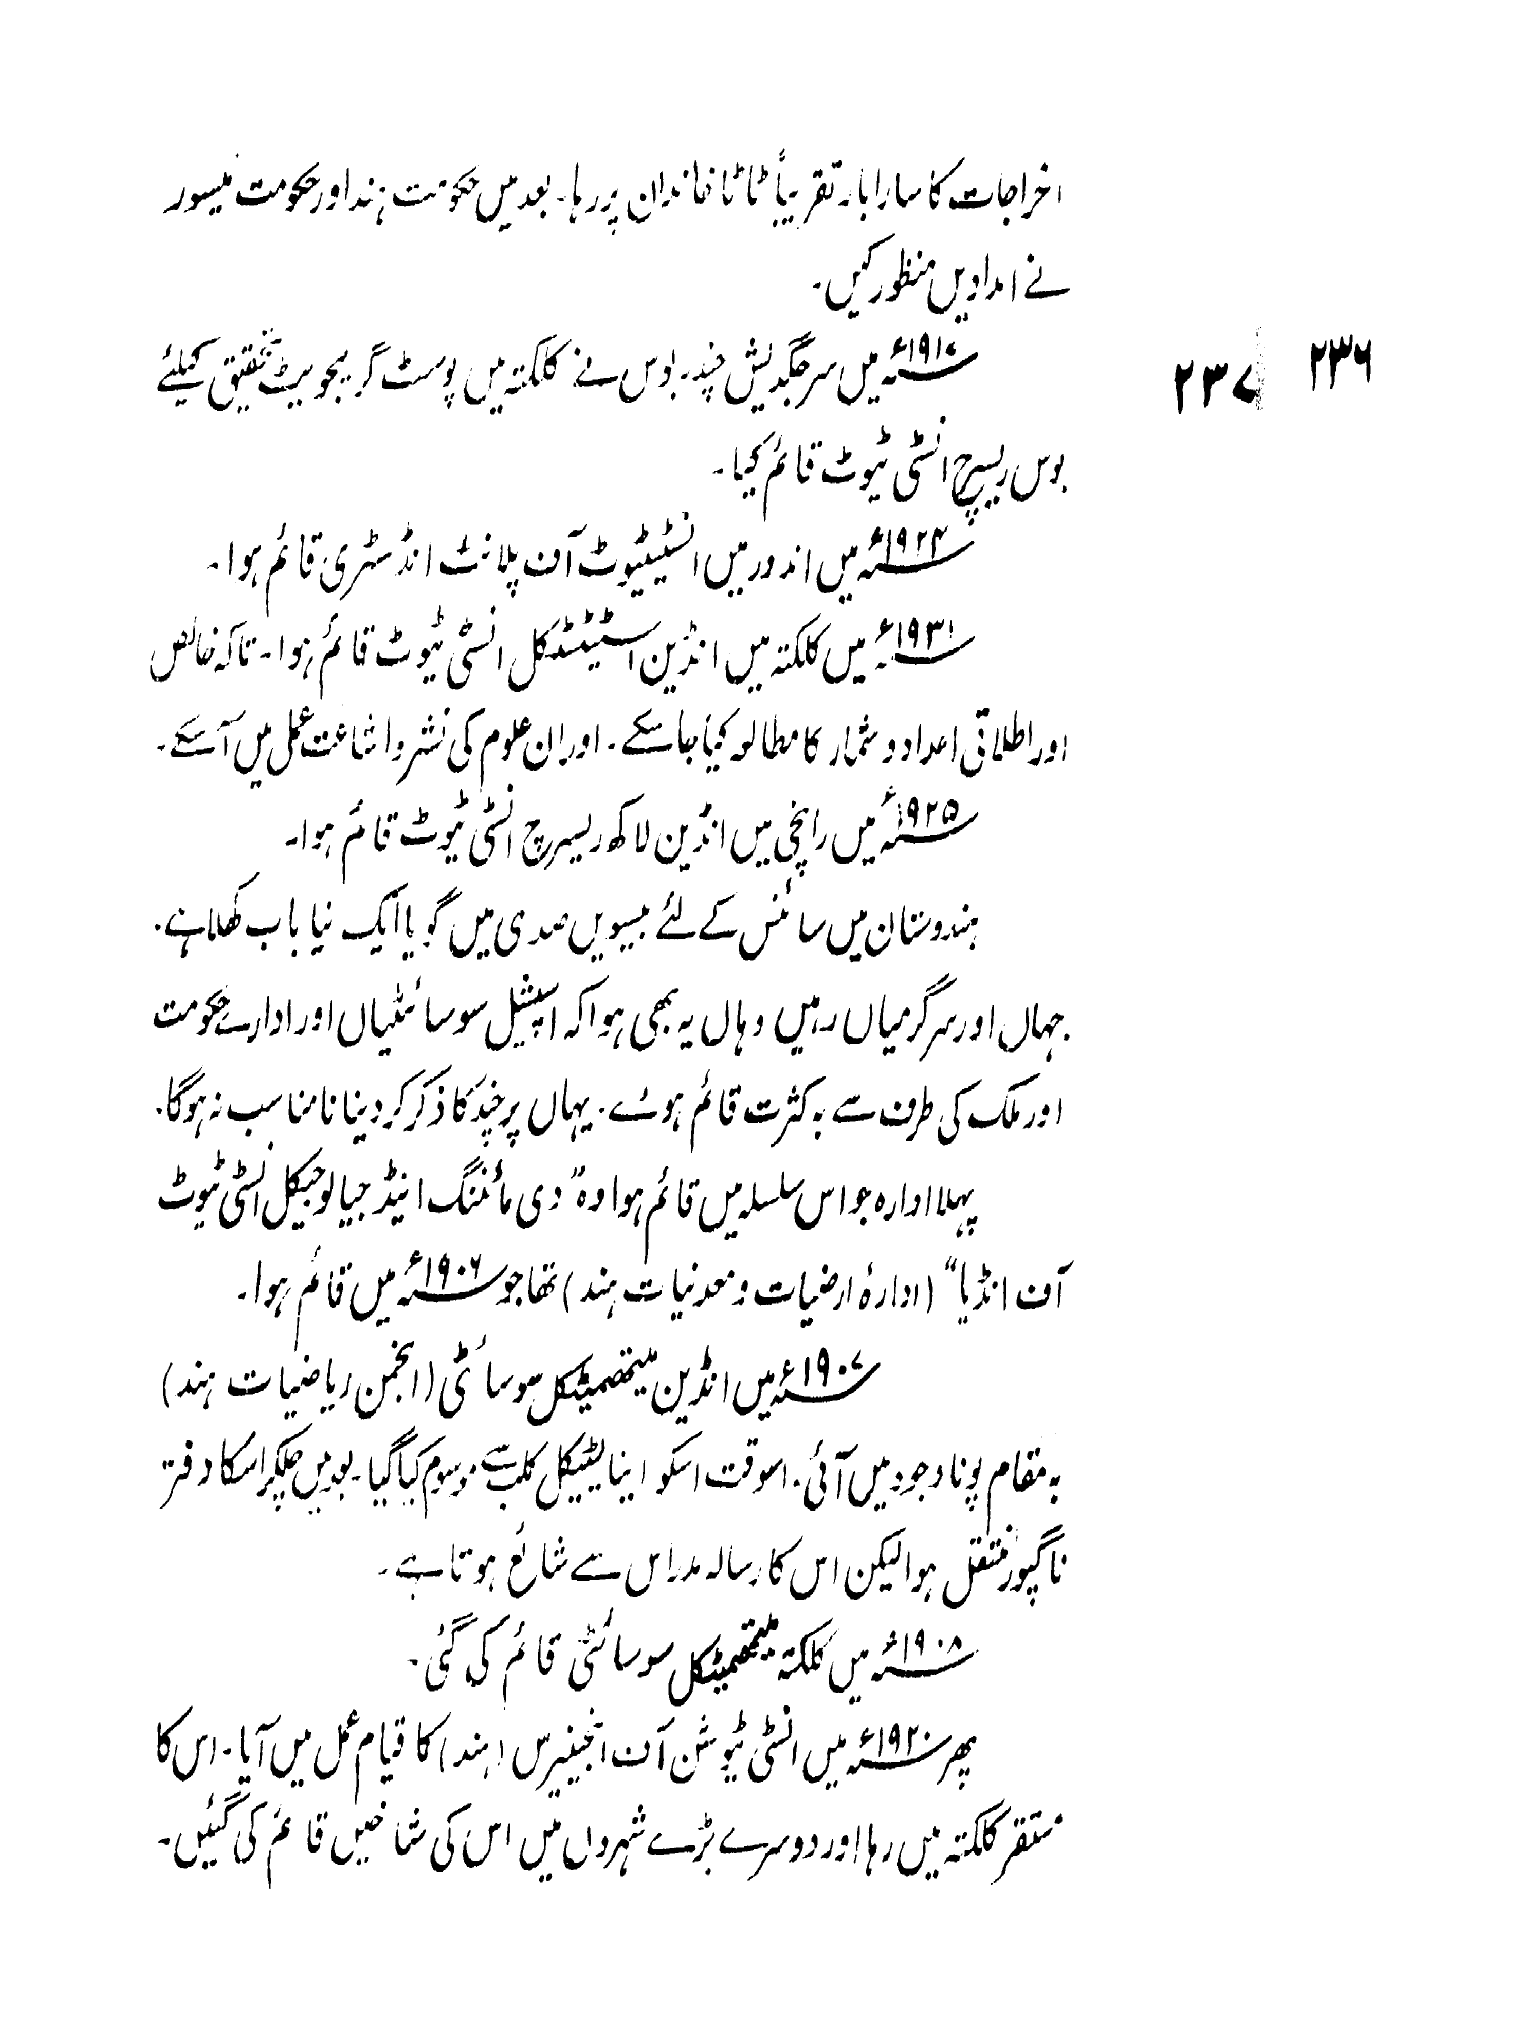 اخراجات کا سارا بار تقریباً ٹاٹا خاندان پر رہا۔ بعد میں حکومت ہند اور حکومت میسور
نے امدادیں منظور کیں۔
۲۳۶
۲۳۷
۱۹۱۷ء میں سر جگدیش چندر بوس نے کلکتہ میں پوسٹ گریجویٹ تحقیق کیلئے
بوس ریسرچ انسٹی ٹیوٹ قائم کیا۔
۱۹۲۴ء میں اندور میں انسٹیٹیوٹ آف پلانٹ انڈسٹری قائم ہوا۔
۱۹۳۱ء میں کلکتہ میں انڈین اسٹیٹسٹکل انسٹی ٹیوٹ قائم ہوا۔ تاکہ خالص
اور اطلاقی اعداد و شمار کا مطالعہ کیا جاسکے۔ اور ان علوم کی نشر و اشاعت عمل میں آسکے۔
۱۹۲۵ء میں رانچی میں انڈین لاکھ ریسرچ انسٹی ٹیوٹ قائم ہوا۔
ہندوستان میں سائنس کے لئے بیسویں صدی میں گویا ایک نیا باب کھلا ہے۔
جہاں اور سرگرمیاں رہیں وہاں یہ بھی ہوا کہ اسپیشل سوسائٹیاں اور ادارے حکومت
اور ملک کی طرف سے بہ کثرت قائم ہوئے۔ یہاں پر چند کا ذکر کر دینا نامناسب نہ ہوگا۔
پہلا ادارہ جو اس سلسلہ میں قائم ہوا وہ "دی مائننگ اینڈ جیالوجیکل انسٹی ٹیوٹ
آف انڈیا" (ادارۂ ارضیات و معدنیات ہند) تھا جو ۱۹۰۶ء میں قائم ہوا۔
۱۹۰۷ء میں انڈین میتھمیٹکل سوسائٹی (انجمن ریاضیات ہند)
بہ مقام پونا وجود میں آئی۔ اسوقت اسکو اینالیٹیکل کلب سے موسوم کیا گیا۔ بعد میں چلکر اسکا دفتر
ناگپور منتقل ہوا لیکن اس کا رسالہ مدراس سے شائع ہوتا ہے۔
۱۹۰۸ء میں کلکتہ میتھمیٹکل سوسائٹی قائم کی گئی۔
پھر ۱۹۲۰ء میں انسٹی ٹیوشن آف انجینیرس (ہند) کا قیام عمل میں آیا۔ اس کا
مستقر کلکتہ میں رہا اور دوسرے بڑے شہروں میں اس کی شاخیں قائم کی گئیں۔